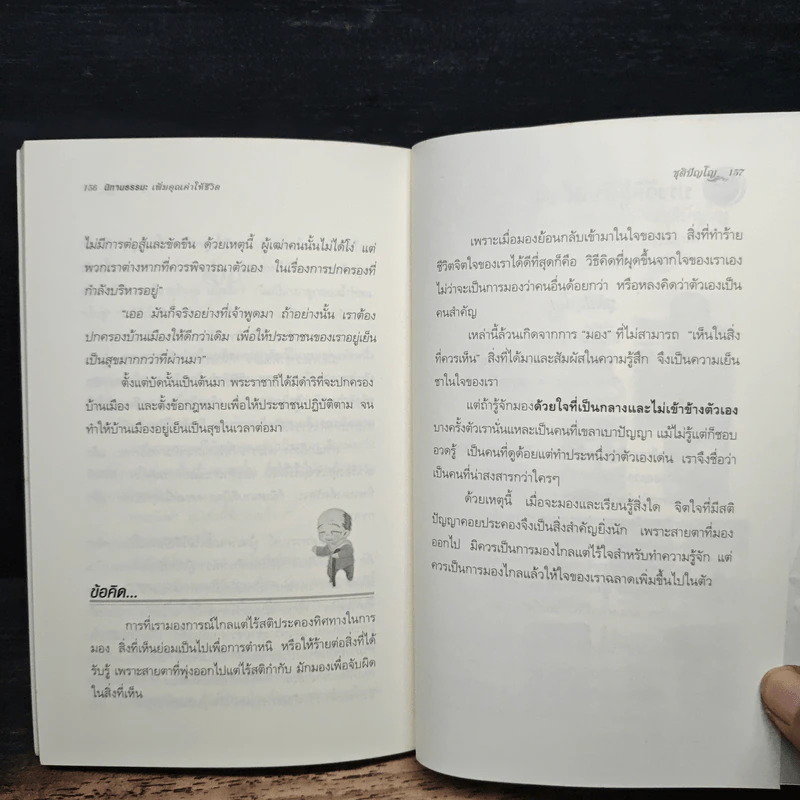 156 นิทานธรรมะ เพิ่มคุณค่าให้ชีวิต
ไม่มีการต่อสู้และขัดขืน ด้วยเหตุนี้ ผู้เฒ่าคนนั้นไม่ได้โง่ แต่
พวกเราต่างหากที่ควรพิจารณาตัวเอง ในเรื่องการปกครองที่
กำลังบริหารอยู่"
"เออ มันก็จริงอย่างที่เจ้าพูดมา ถ้าอย่างนั้น เราต้อง
ปกครองบ้านเมืองให้ดีกว่าเดิม เพื่อให้ประชาชนของเราอยู่เย็น
เป็นสุขมากกว่าที่ผ่านมา"
ตั้งแต่บัดนั้นเป็นต้นมา พระราชาก็ได้มีดำริที่จะปกครอง
บ้านเมือง และตั้งข้อกฎหมายเพื่อให้ประชาชนปฏิบัติตาม จน
ทำให้บ้านเมืองอยู่เย็นเป็นสุขในเวลาต่อมา
ข้อคิด...
การที่เรามองการณ์ไกลแต่ไร้สติประคองทิศทางในการ
มอง สิ่งที่เห็นย่อมเป็นไปเพื่อการตำหนิ หรือให้ร้ายต่อสิ่งที่ได้
รับรู้ เพราะสายตาที่พุ่งออกไปแต่ไร้สติกำกับ มักมองเพื่อจับผิด
ในสิ่งที่เห็น
ชุติปัญโญ 157
เพราะเมื่อมองย้อนกลับเข้ามาในใจของเรา สิ่งที่ทำร้าย
ชีวิตจิตใจของเราได้ดีที่สุดก็คือ วิธีคิดที่ผุดขึ้นจากใจของเราเอง
ไม่ว่าจะเป็นการมองว่าคนอื่นด้อยกว่า หรือหลงคิดว่าตัวเองเป็น
คนสำคัญ
เหล่านี้ล้วนเกิดจากการ "มอง" ที่ไม่สามารถ "เห็นในสิ่ง
ที่ควรเห็น" สิ่งที่ได้มาและสัมผัสในความรู้สึก จึงเป็นความเย็น
ชาในใจของเรา
แต่ถ้ารู้จักมองด้วยใจที่เป็นกลางและไม่เข้าข้างตัวเอง
บางครั้งตัวเรานั่นแหละเป็นคนที่เขลาเบาปัญญา แม้ไม่รู้แต่ก็ชอบ
อวดรู้ เป็นคนที่ดูด้อยแต่ทำประหนึ่งว่าตัวเองเด่น เราจึงชื่อว่า
เป็นคนที่น่าสงสารกว่าใครๆ
ด้วยเหตุนี้ เมื่อจะมองและเรียนรู้สิ่งใด จิตใจที่มีสติ
ปัญญาคอยประคองจึงเป็นสิ่งสำคัญยิ่งนัก เพราะสายตาที่มอง
ออกไป มิควรเป็นการมองไกลแต่ไร้ใจสำหรับทำความรู้จัก แต่
ควรเป็นการมองไกลแล้วให้ใจของเราฉลาดเพิ่มขึ้นไปในตัว